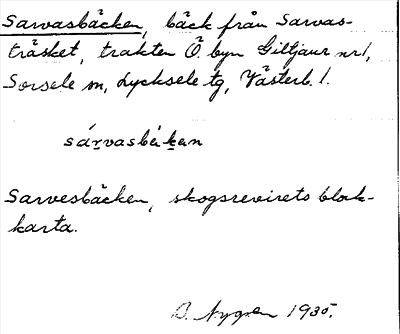 Sarvasbäcken, bäck från Sarvas-
träsket, trakten Ö. byn Giltjaur nr 1,
Sorsele sn, Lycksele tg, Västerb. l.
sárvasbä́kan
Sarvesbäcken, skogsrevirets block-
karta.
Nygren 1935.